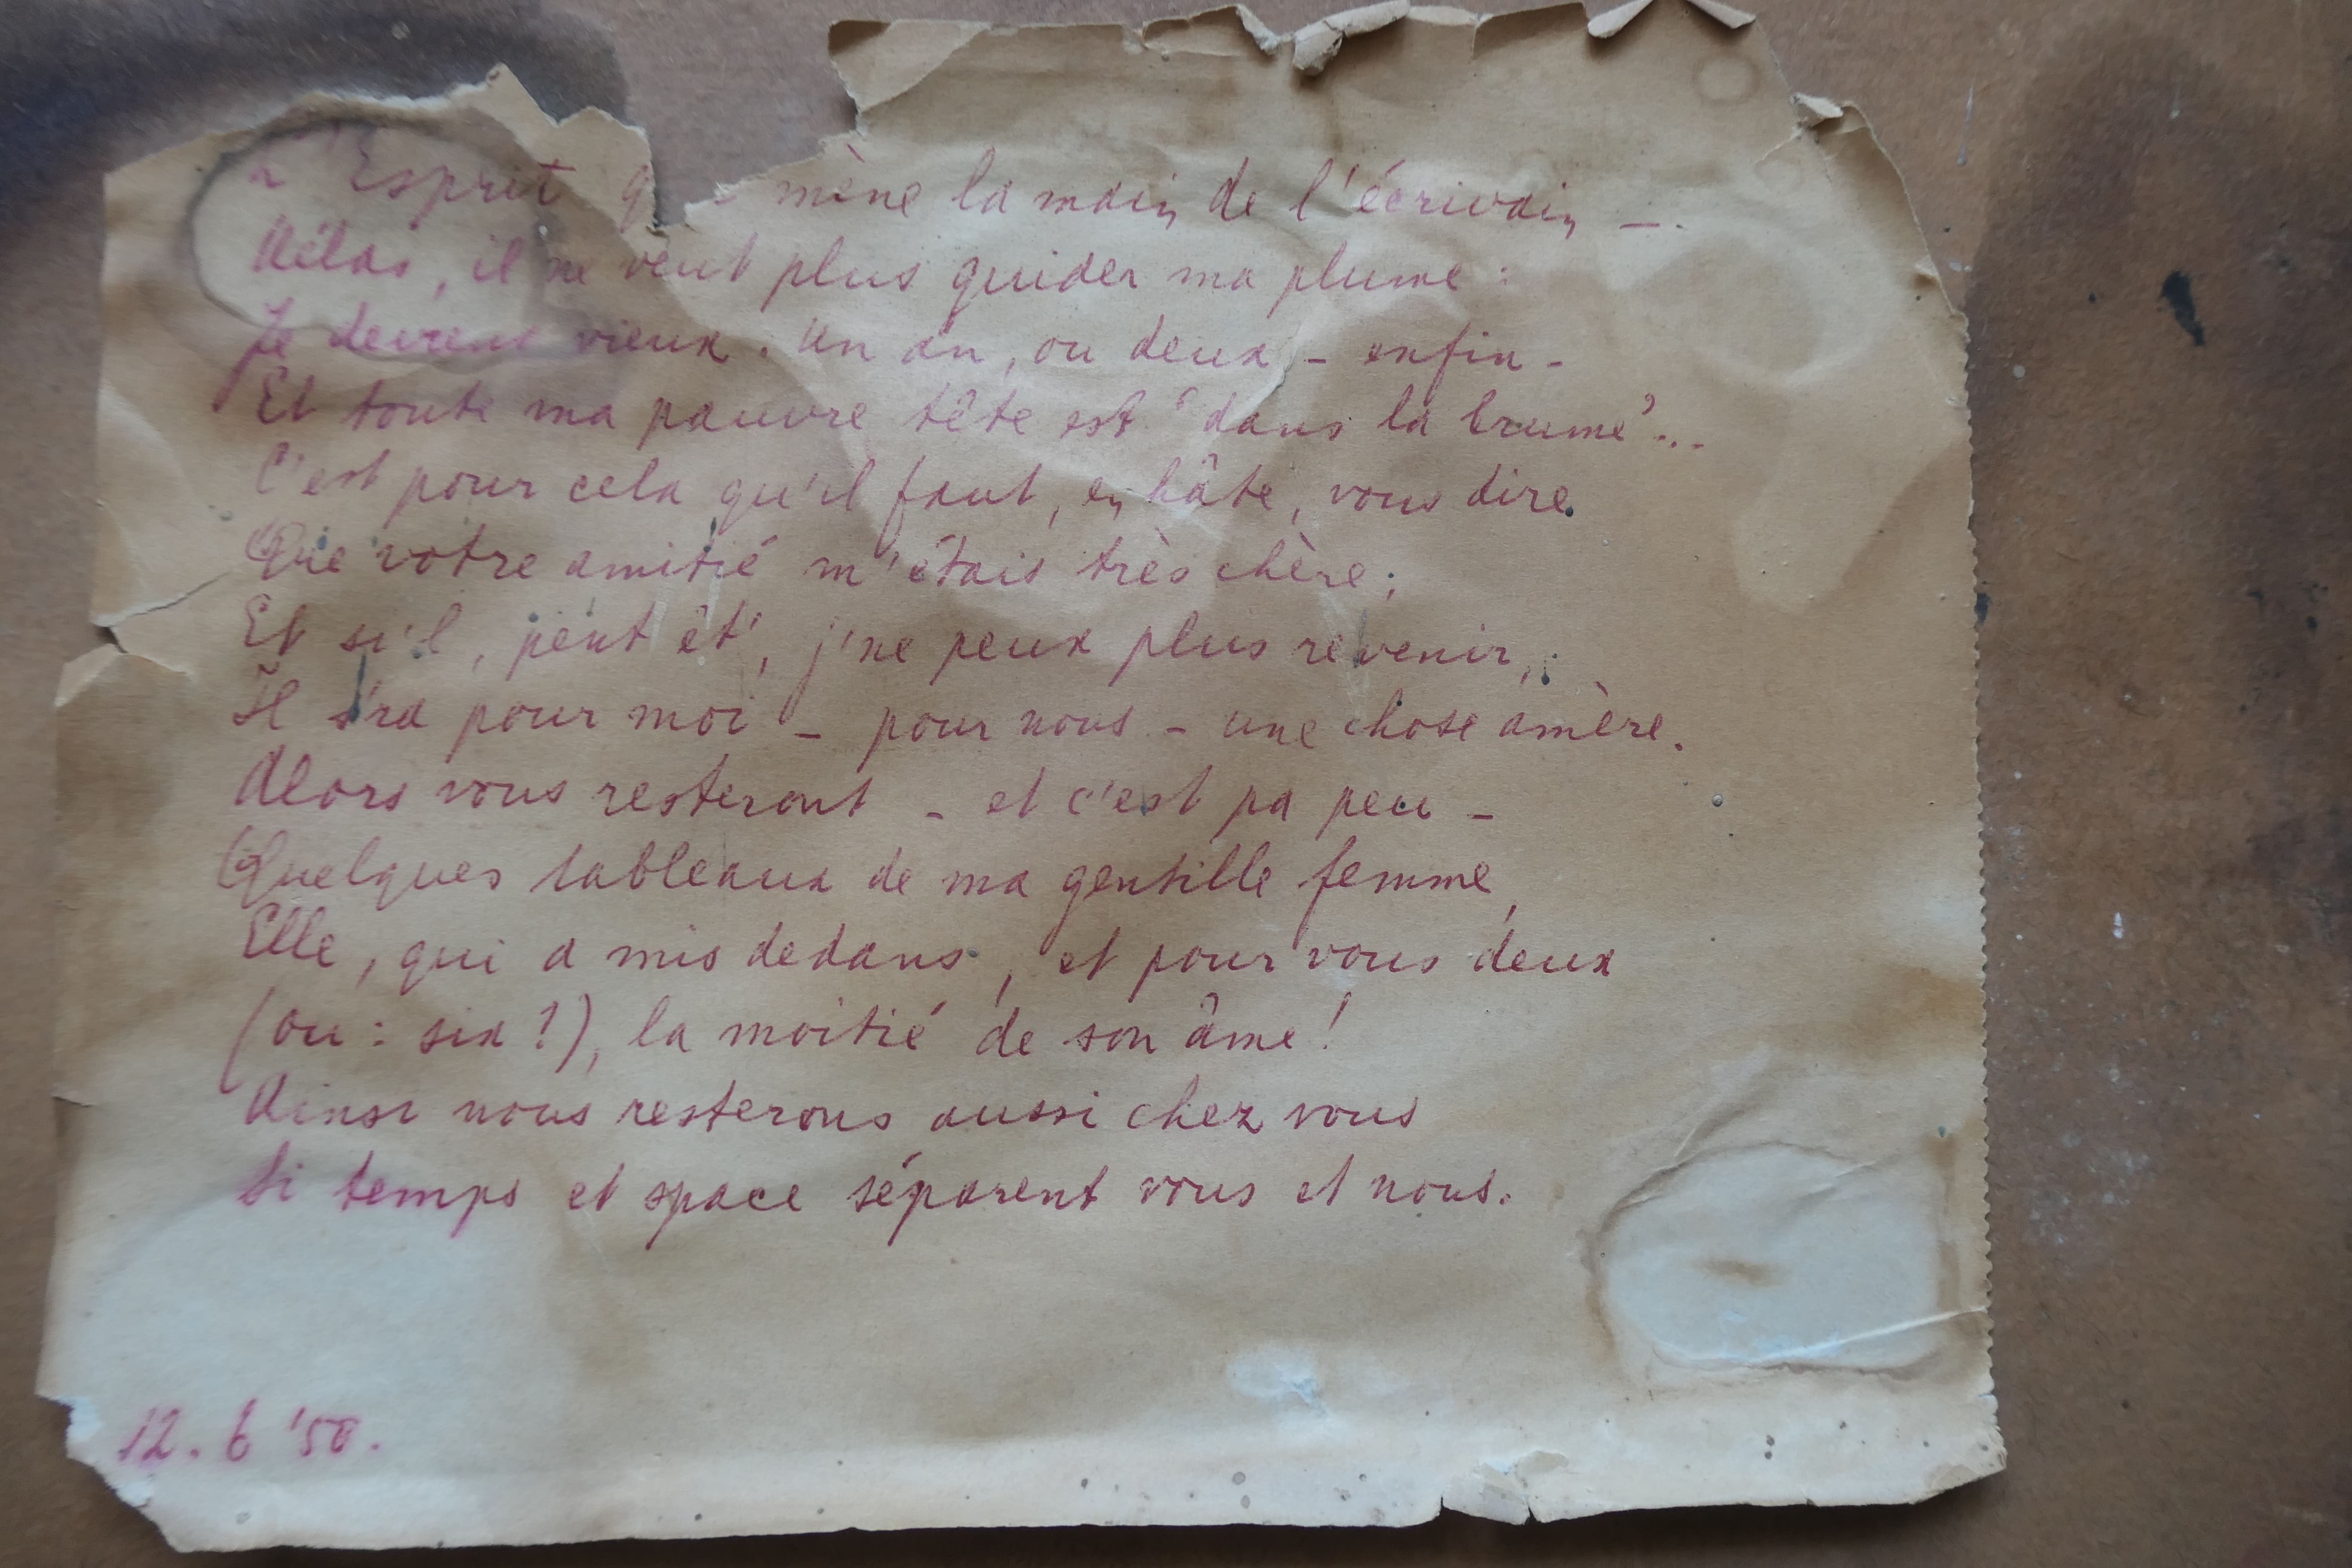 L'Esprit mène la main de l'écrivain —
Hélas, il ne veut plus guider ma plume :
Je deviens vieux. Un an, ou deux – enfin –
Et toute ma pauvre tête est "dans la brume"...
C'est pour cela qu'il faut, en hâte, vous dire
Que votre amitié m'étais très chère ;
Et si'l, peut êt', j'ne peux plus revenir,
Il s'ra pour moi – pour nous – une chose amère.
Alors vous resteront – et c'est pa peu –
Quelques tableaux de ma gentille femme,
Elle, qui a mis dedans, et pour vous deux
(ou : six ?), la moitié de son âme !
Ainsi nous resterons aussi chez vous
Si temps et space séparent vous et nous.
12. 6 '50.